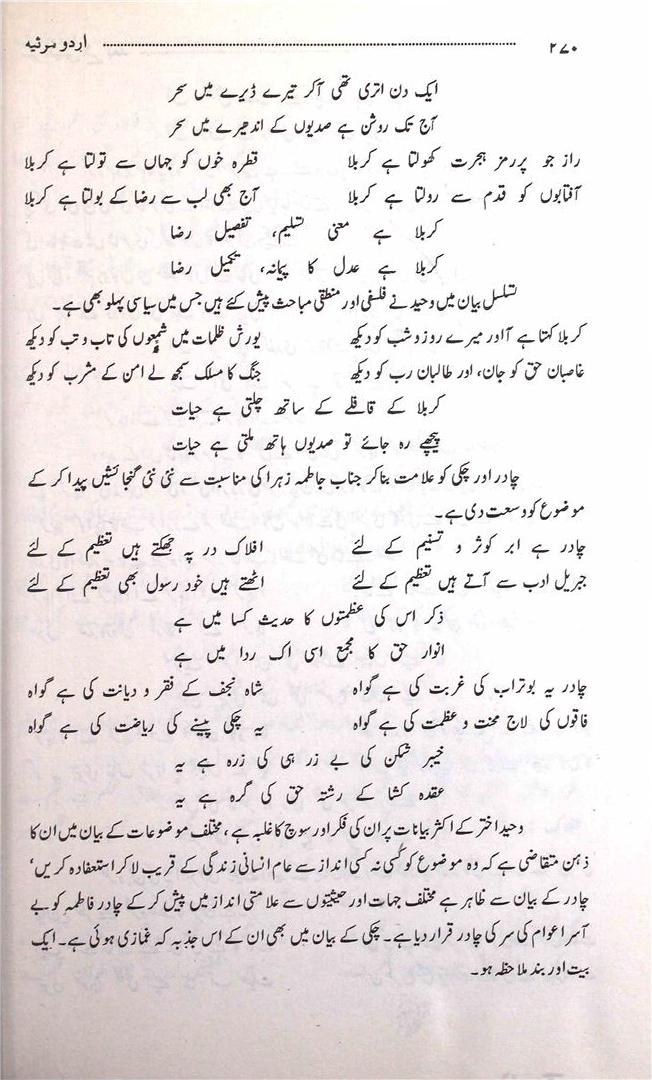 ۲۷۰ اردو مرثیہ
ایک دن اتری تھی آکر تیرے ڈیرے میں سحر
آج تک روشن ہے صدیوں کے اندھیرے میں سحر
راز جو پررمز ہجرت کھولتا ہے کربلا قطرہ خوں کو جہاں سے تولتا ہے کربلا
آفتابوں کو قدم سے رولتا ہے کربلا آج بھی لب سے رضا کے بولتا ہے کربلا
کربلا ہے معنی تسلیم، تفصیل رضا
کربلا ہے عدل کا پیمانہ، تکمیل رضا
تسلسل بیان میں وحید نے فلسفی اور منطقی مباحث پیش کئے ہیں جس میں سیاسی پہلو بھی ہے۔
کربلا کہتا ہے آاور میرے روز و شب کو دیکھ یورش ظلمات میں شمعوں کی تاب و تب کو دیکھ
غاصبان حق کو جان، اور طالبان رب کو دیکھ جنگ کا مسلک سمجھ لے امن کے مشرب کو دیکھ
کربلا کے قافلے کے ساتھ چلتی ہے حیات
پیچھے رہ جائے تو صدیوں ہاتھ ملتی ہے حیات
چادر اور چکی کو علامت بناکر جناب جاطمہ زہرا کی مناسبت سے نئی نئی گنجائشیں پیدا کر کے
موضوع کو وسعت دی ہے۔
چادر ہے ابر کوثر و تسنیم کے لئے افلاک در پہ جھکتے ہیں تعظیم کے لئے
جبریل ادب سے آتے ہیں تعظیم کے لئے اٹھتے ہیں خود رسول بھی تعظیم کے لئے
ذکر اس کی عظمتوں کا حدیث کسا میں ہے
انوار حق کا مجمع اسی اک ردا میں ہے
چادر یہ بوتراب کی غربت کی ہے گواہ شاہ نجف کے فقر و دیانت کی ہے گواہ
فاقوں کی لاج محنت و عظمت کی ہے گواہ یہ چکی پیسنے کی ریاضت کی ہے گواہ
خیبر شکن کی بے زر ہی کی زرہ ہے یہ
عقدہ کشا کے رشتہ حق کی گرہ ہے یہ
وحید اختر کے اکثر بیانات پر ان کی فکر اور سوچ کا غلبہ ہے، مختلف موضوعات کے بیان میں ان کا
ذہن متقاضی ہے کہ وہ موضوع کو کسی نہ کسی انداز سے عام انسانی زندگی کے قریب لاکر استعفادہ کریں‘
چادر کے بیان سے ظاہر ہے مختلف جہات اور حیثیتوں سے علامتی انداز میں پیش کر کے چادر فاطمہ کو بے
آسرا عوام کی سر کی چادر قرار دیا ہے۔ چکی کے بیان میں بھی ان کے اس جذبہ کہ غمازی ہوئی ہے۔ ایک
بیت اور بند ملاحظہ ہو۔